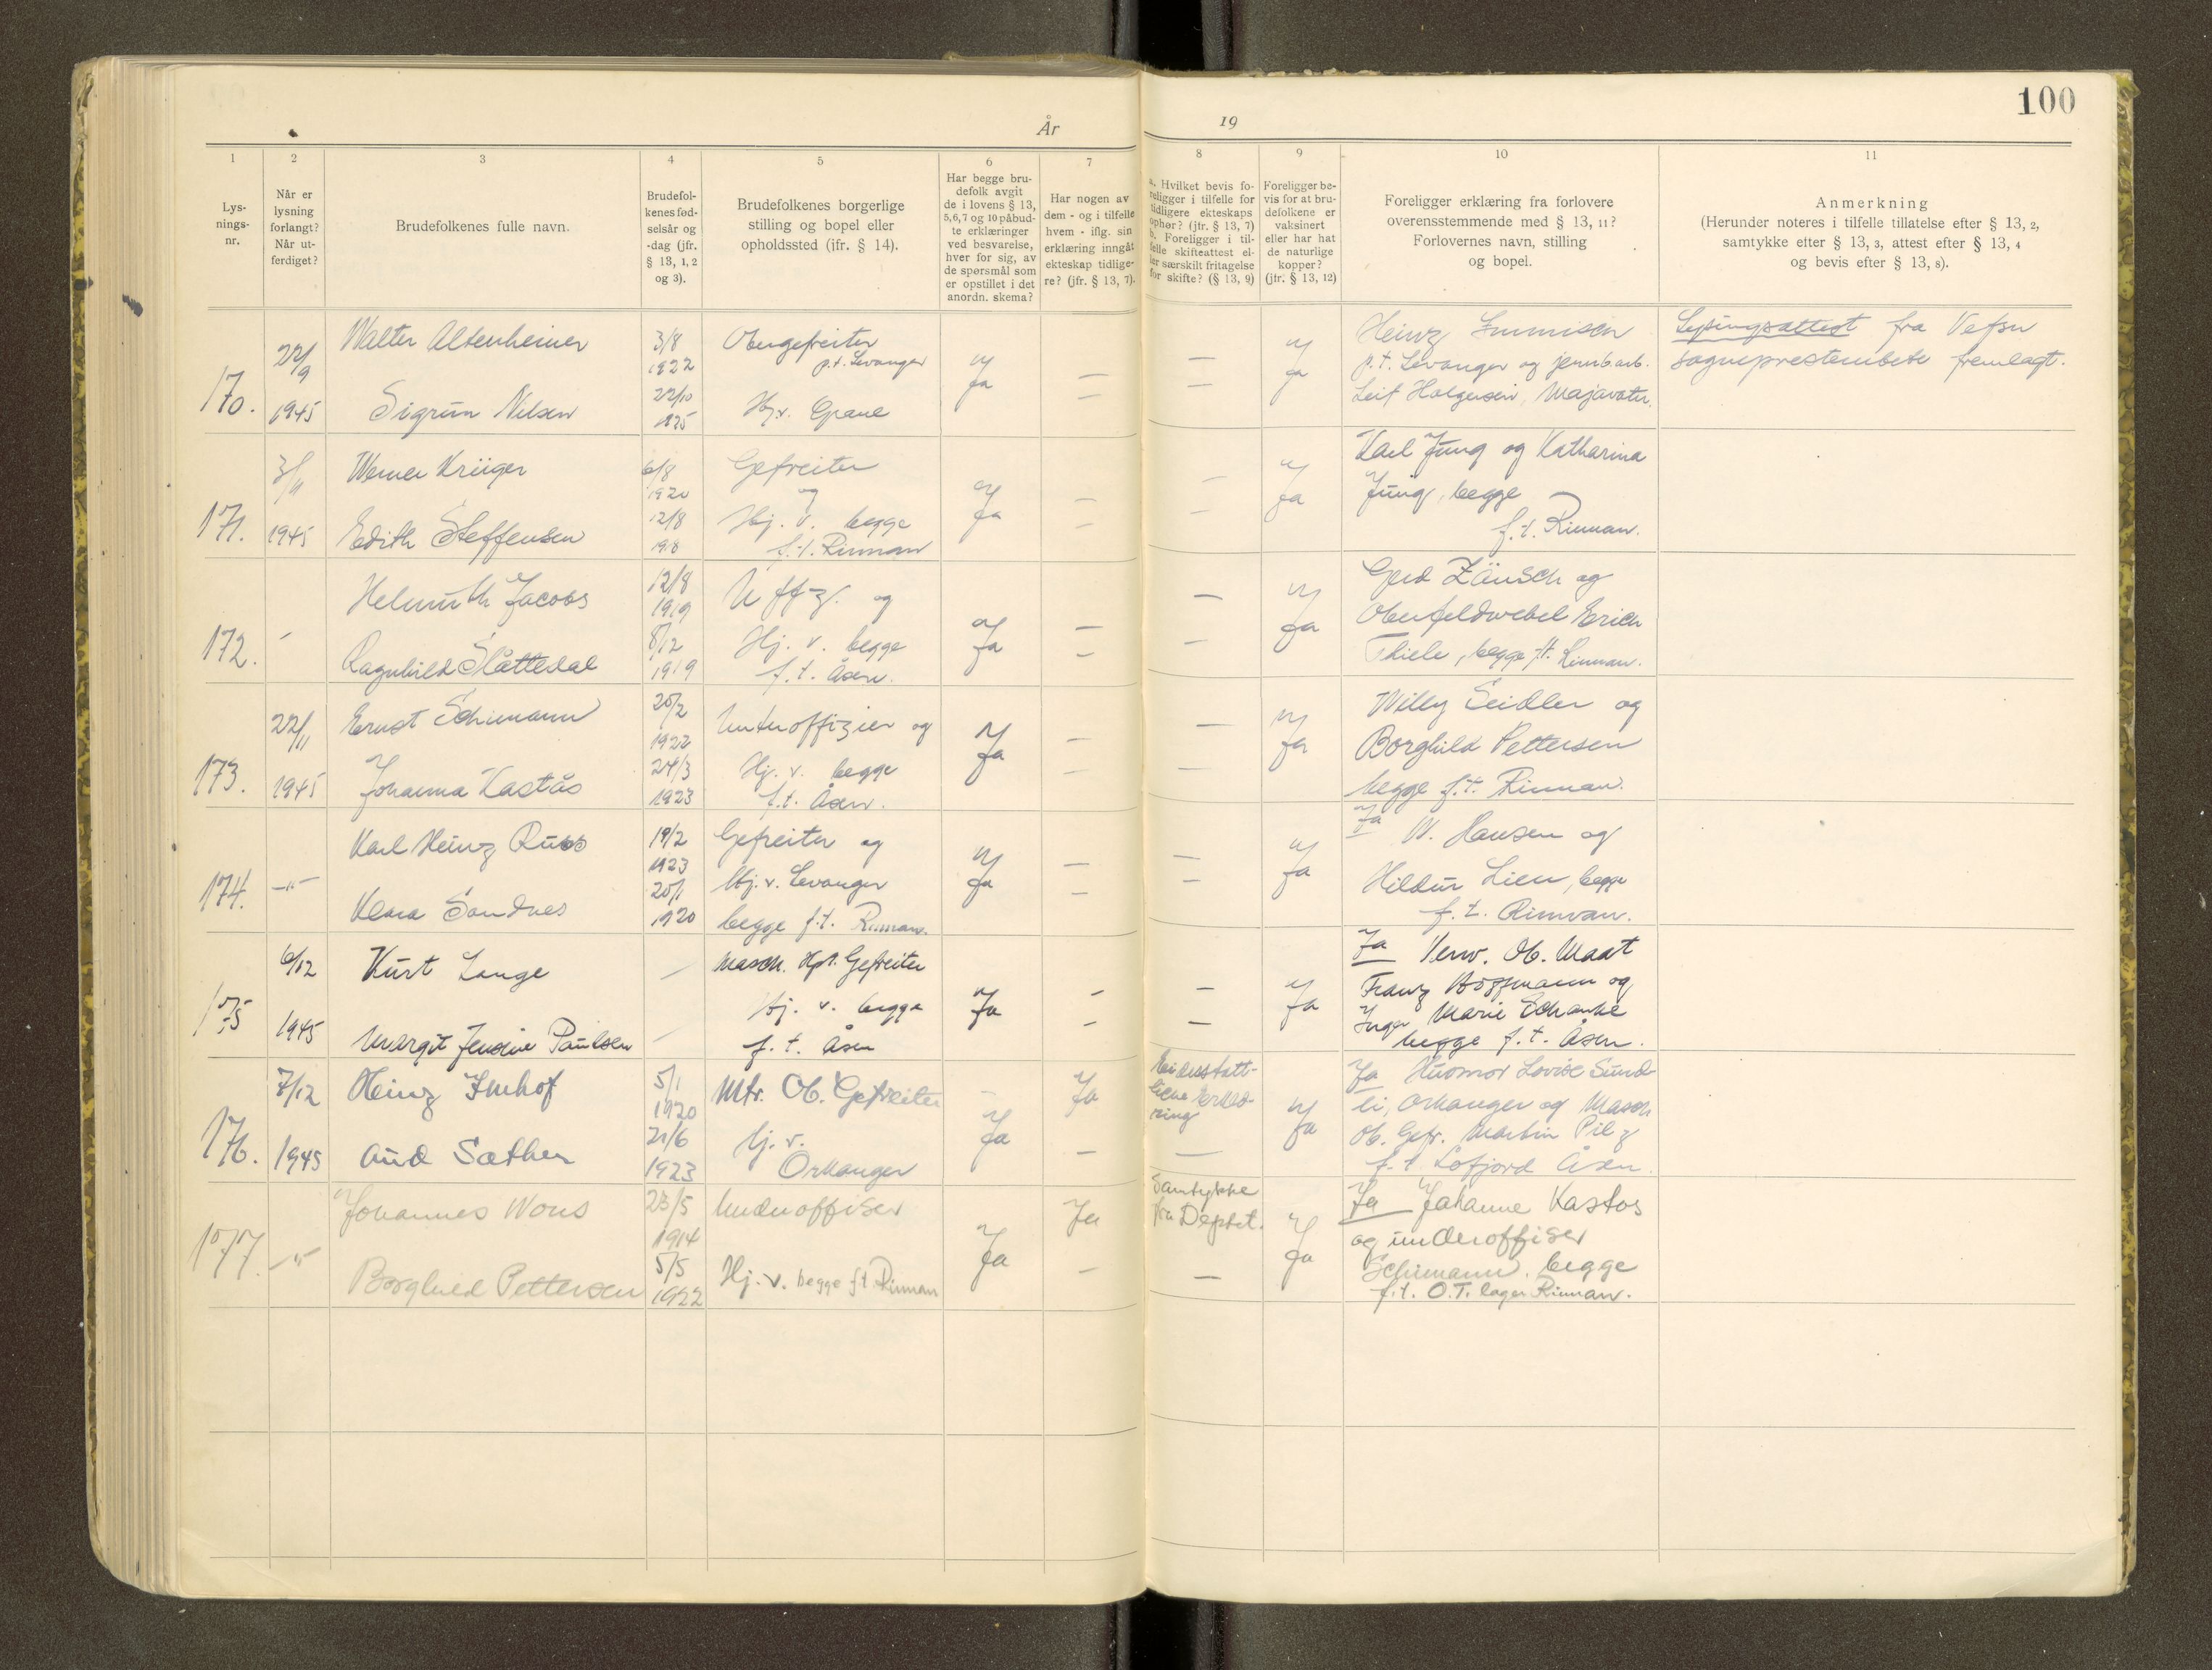 100
År
19
1
2
3
4
5
6
7
8
9
10
11
Lys-
nings-
nr.
Når er
lysning
forlangt?
Når ut-
ferdiget?
Brudefolkenes fulle navn.
Brudefol-
kenes fød-
selsår og
-dag (jfr.
§ 13, 1, 2
og 3).
Brudefolkenes borgerlige
stilling og bopel eller
opholdssted (ifr. § 14).
Har begge bru-
defolk avgit
de i lovens § 13,
5,6,7 og 10 påbud-
te erklæringer
ved besvarelse,
hver for sig, av
de spørsmål som
er opstillet i det
anordn. skema?
Har nogen av
dem - og i tilfelle
hvem - iflg. sin
erklæring inngåt
ekteskap tidlige-
re? (jfr. § 13, 7).
a. Hvilket bevis fo-
religger i tilfelle for
tidligere ekteskaps
ophør? (jfr. § 13, 7)
b. Foreligger i til-
felle skifteattest el-
ler særskilt fritagelse
for skifte? (§ 13, 9)
Foreligger be-
vis for at bru-
defolkene er
vaksinert
eller har hat
de naturlige
kopper?
(jfr. § 13, 12)
Foreligger erklæring fra forlovere
overensstemmende med § 13, 11?
Forlovernes navn, stilling
og bopel.
Anmerkning
(Herunder noteres i tilfelle tillatelse efter § 13, 2,
samtykke efter § 13, 3, attest efter § 13, 4
og bevis efter § 13, 8).
170.
22/9
1945
Walter Altenheimer
Sigrun Nilsen
3/8
1922
22/10
1925
Obergefreiter
p.t. Levanger
Hj.v. Grane
Ja
—
—
—
—
Ja
Heinz
p.t. Levanger og jernb.arb.
Leif Holgersen, Majavatn.
Lysingsattest fra Vefsn
sogneprestembete fremlagt.
171.
3/11
1945
Werner Krüger
Edith Steffensen
6/8
1920
12/8
1918
Gefreiter
og
Hj. v. begge
f.t. Rinnan
Ja
—
—
—
—
Ja
Karl Jung og Katharina
Jung, begge
f.t. Rinnan.
172.
Helmuth Jacobs
Ragnhild Slåttedal
12/8
1919
8/12
1919
Uffz. og
Hj. v. begge
f.t. Åsen.
Ja
—
—
—
—
Ja
Gerd Zänsch og
Oberfeldwebel Erich
Thiele, begge f.t. Rinnan.
173.
22/11
1945
Ernst Schimann
Johanna Kastås
20/2
1922
24/3
1923
Unteroffizier og
Hj. v. begge
f.t. Åsen.
Ja
—
—
—
—
Ja
Willy Seidler og
Borghild Pettersen
begge f.t. Rinnan.
174.
—"—
Karl Heinz Russ
Klara Sandnes
19/2
1923
20/1
1920
Gefreiter og
Hj. v. Levanger
begge f.t. Rinnan.
Ja
—
—
—
—
Ja
Ja W. Hansen og
Hildur Lien, begge
f.t. Rinnan.
175
6/12
1945
Kurt Lange
Margit Jensine Paulsen
—
—
Masch. Hpt. Gefreiter
Hj. v. begge
f.t. Åsen
Ja
—
—
—
—
Ja
Ja Verw. Ob. Maat
Franz Hoffmann og
Inger Marie Schanke
begge f.t. Åsen.
176.
7/12
1945
Heinz Imhof
Aud Sæther
5/1
1920
21/6
1923
Mtr. Ob. Gefreiter
Hj. v.
Orkanger
Ja
Ja
—
Eidesstatt-
liche Erklä-
rung
—
Ja
Ja Husmor Lovise Sund-
li, Orkanger og Masch
Ob. Gefr. Martin Pilz
f.t. Lofjord Åsen.
177.
—"—
Johannes Wons
Borghild Pettersen
23/5
1914
5/5
1922
Underoffiser
Hj. v. begge f.t. Rinnan
Ja
Ja
—
Samtykke
fra Deptet.
—
Ja
Ja Johanne Kastos
og underoffiser
Schimann, begge
f.t. O.T. lager Rinnan.